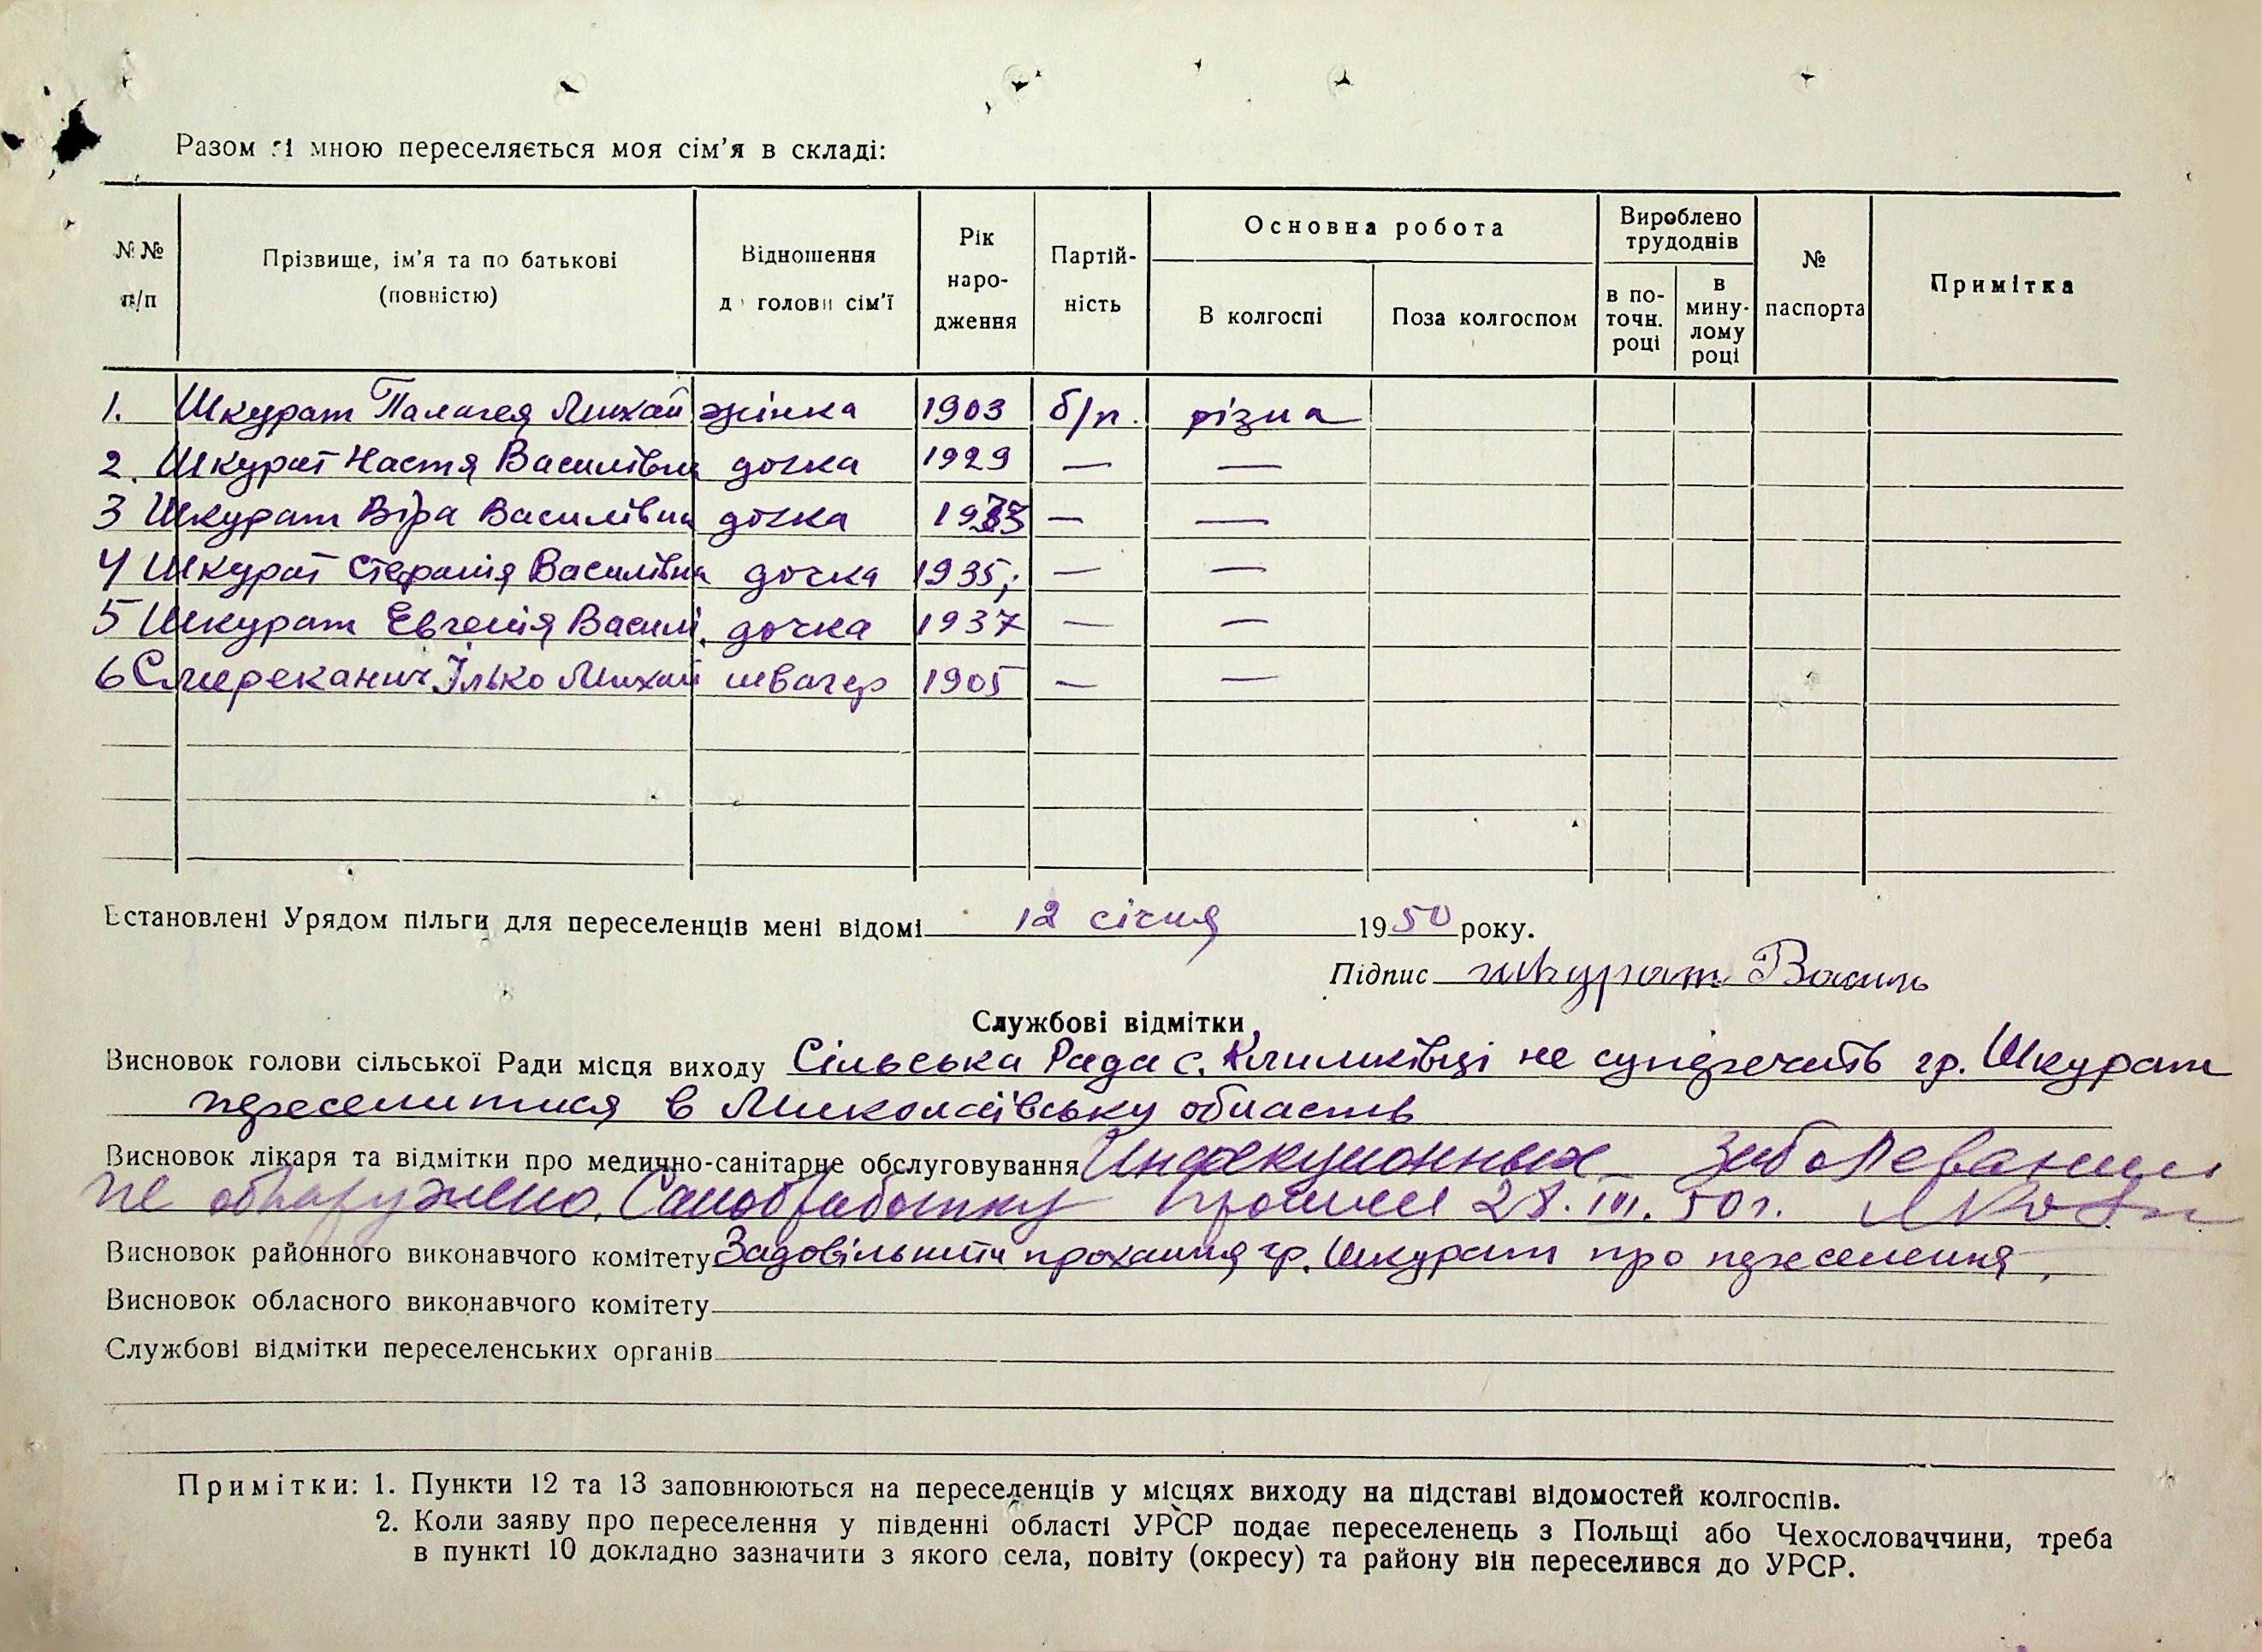 Разом зі мною переселяється моя сім’я в складі:
№№ п/п | Прізвище, ім’я та по батькові (повністю) | Відношення до голови сім’ї | Рік народження | Партійність | Основна робота | Вироблено трудоднів | № паспорта | Примітка
В колгоспі | Поза колгоспом | в поточн. році | в минулому році
1. Шкурат Палагея Михай жінка 1903 б/п. різна
2. Шкурат Настя Василівна дочка 1929 — —
3 Шкурат Віра Василівна дочка 1933 — —
4 Шкурат Стефанія Василівна дочка 1935; — —
5 Шкурат Евгенія Василі. дочка 1937 — —
6 Смереканич Ілько Михай швагер 1905 — —
Встановлені Урядом пільги для переселенців мені відомі 12 січня 1950 року.
Підпис Шкурат Василь
Службові відмітки
Висновок голови сільської Ради місця виходу Сільська Рада с. Климківці не суперечить гр. Шкурат
переселитися в Миколаївську область
Висновок лікаря та відмітки про медично-санітарне обслуговування Инфекционных заболеваний
не обнаружено. Санобработку прошли 28.III.50г.
Висновок районного виконавчого комітету Задовільнити прохання гр. Шкурат про переселення.
Висновок обласного виконавчого комітету
Службові відмітки переселенських органів
Примітки: 1. Пункти 12 та 13 заповнюються на переселенців у місцях виходу на підставі відомостей колгоспів.
2. Коли заяву про переселення у південні області УРСР подає переселенець з Польщі або Чехословаччини, треба
в пункті 10 докладно зазначити з якого села, повіту (окресу) та району він переселився до УРСР.